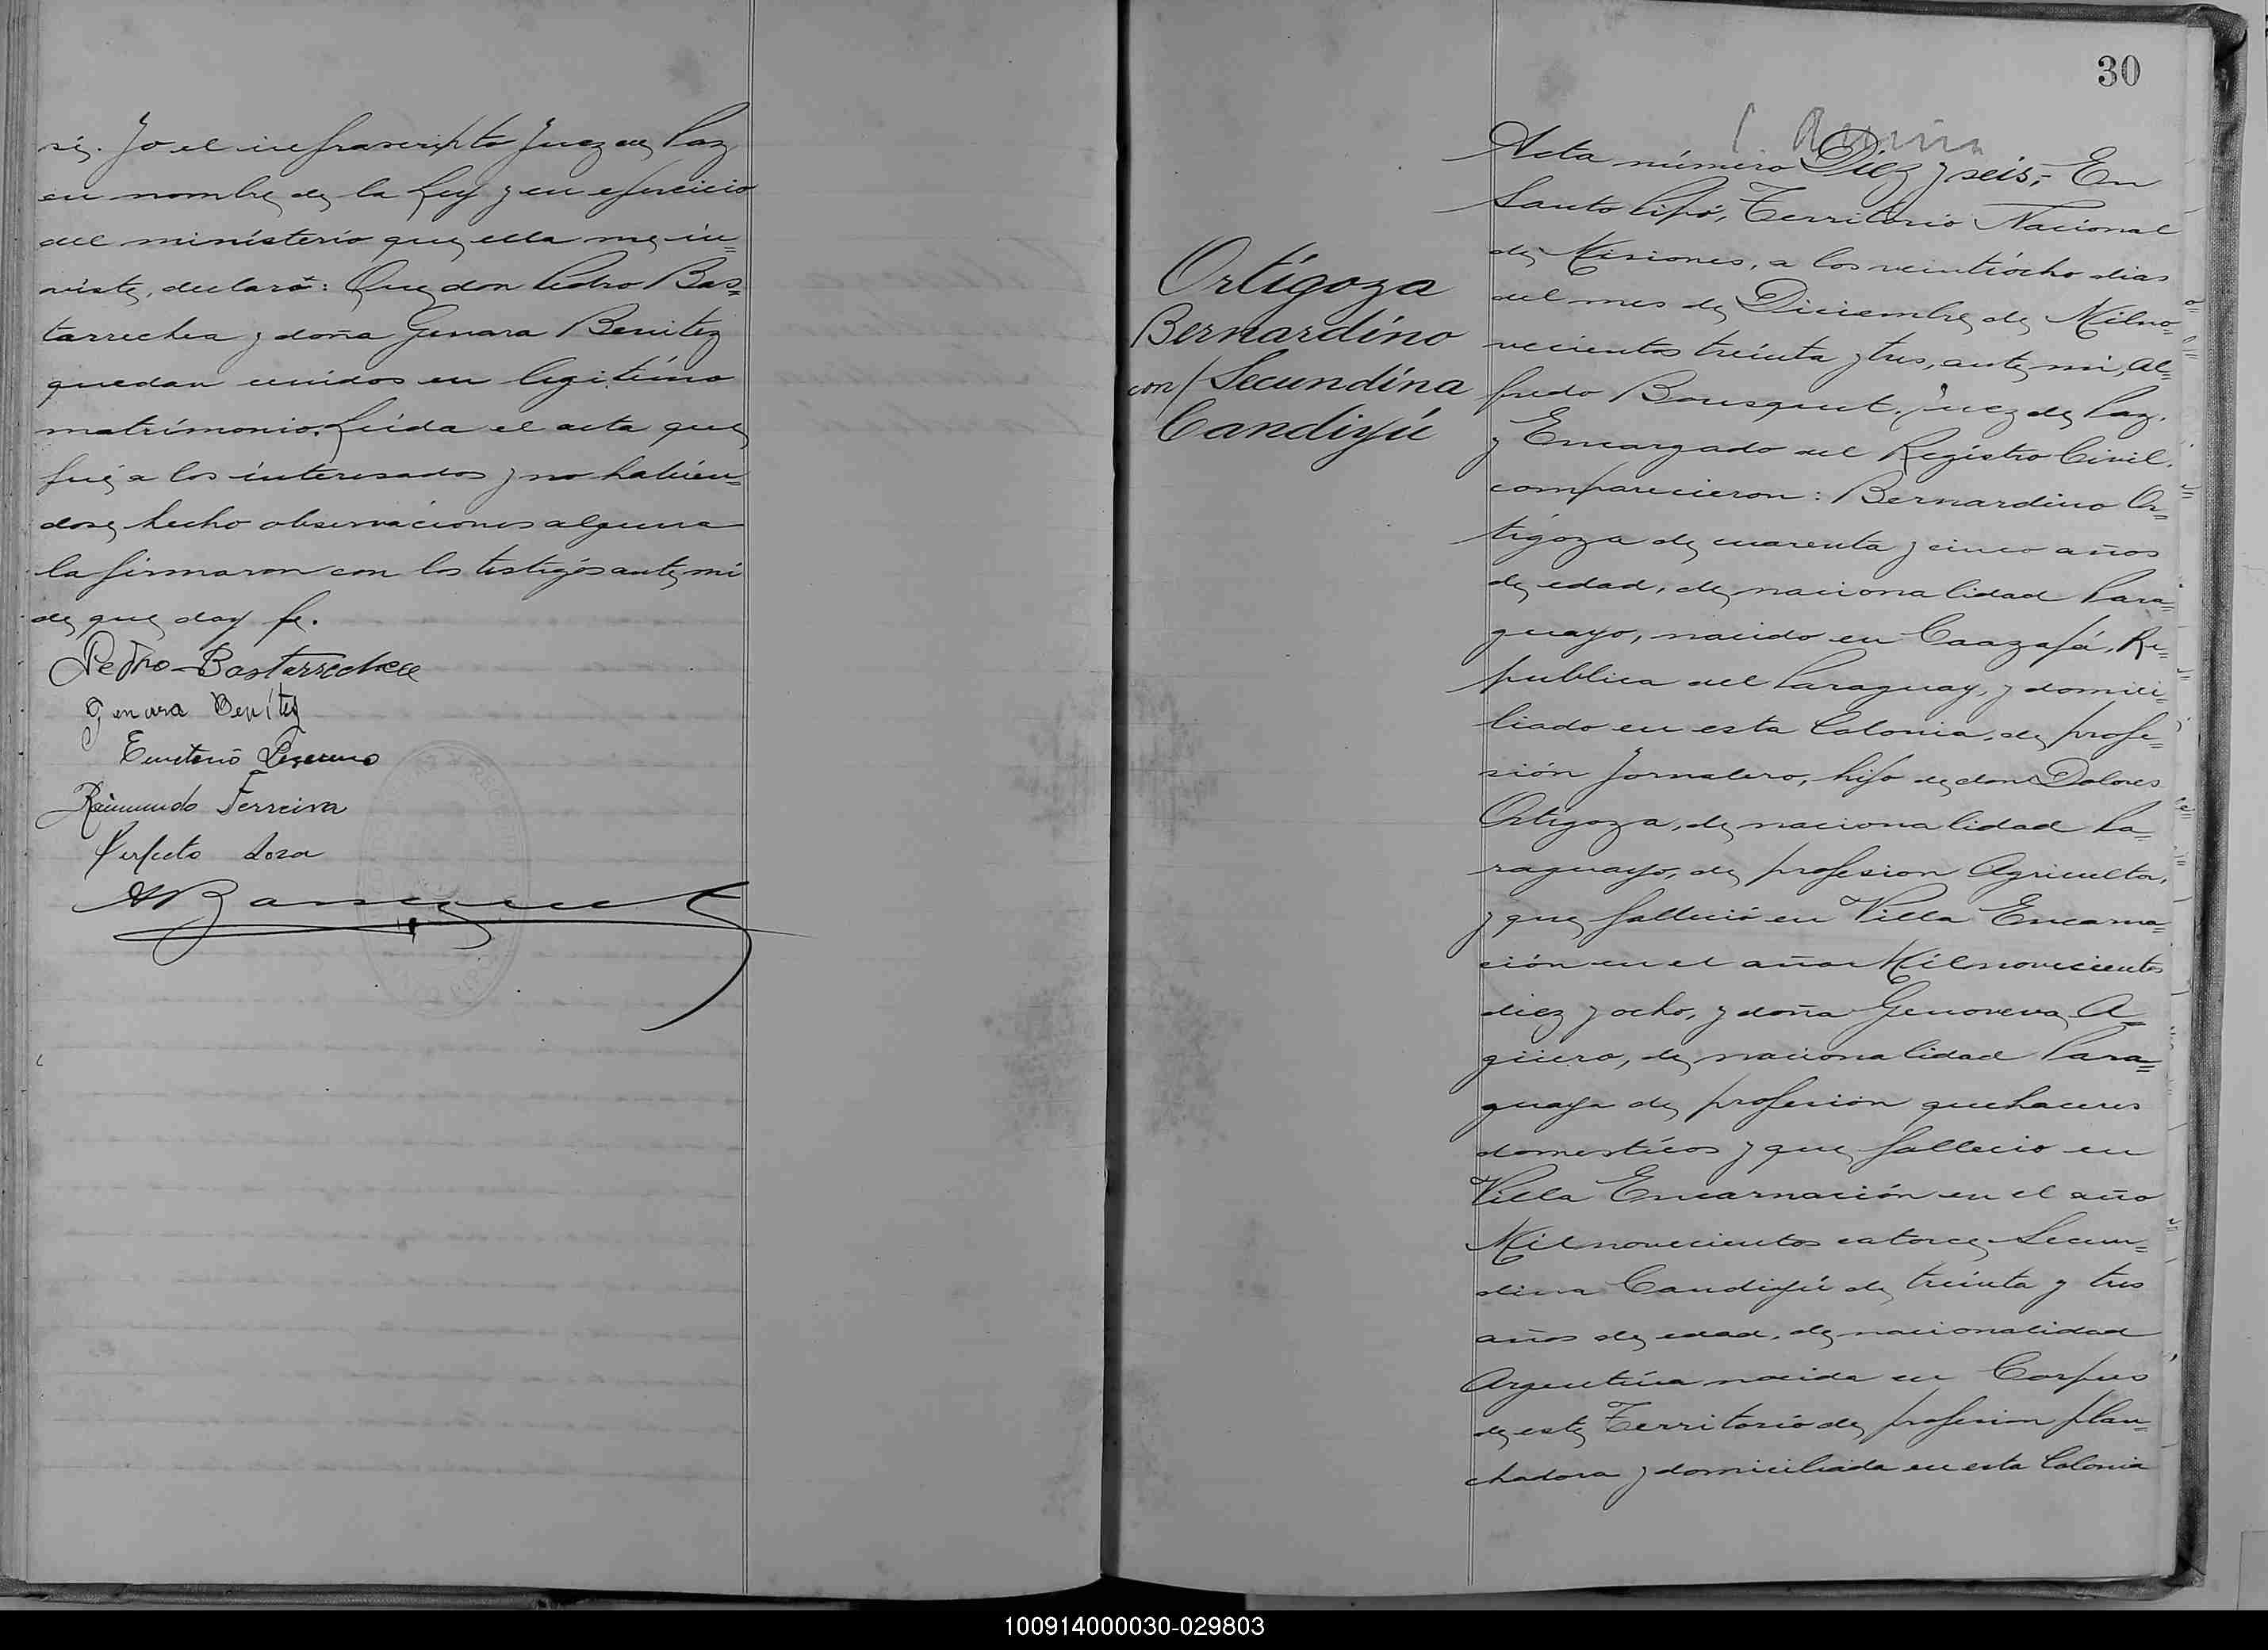 sí. Yo el infrascripto Juez de Paz
en nombre de la Ley y en ejercicio
del ministerio que ella me in=
viste, declaró: Que don Pedro Bas=
tarrechea y doña Genara Benitez
quedan unidos en legitímo
matrímonio. Leída el acta que
fué a los interesados y no habien=
dose hecho observaciones alguna
la firmaron con los testigós ante mi
de que doy fe.
Pedro Bastarrechea
Genara Benítez
Raimundo Ferreira
Perfecto Sosa
ABousquet
30
Ortígoza
Bernardíno
con/ Secundína
Candiyú
Acta número Diez y seis,- En
Santo Pipó, Territorio Nacional
de Misiones, a los veintiócho dias
del mes de Diciembre de Milno=
vecientos treinta y tres, ante mi, Al=
fredo Bousquet, Juez de Paz,
y Encargado del Registro Civil,
comparecieron: Bernardino Or=
tigoza de cuarenta y cinco años
de edad, de nacionalidad Para=
guayo, nacido en Caazapá, Re=
publica del Paraguay, y domici=
liado en esta Colonia, de profe=
sión Jornalero, hijo de don Dolores
Ortigoza, de nacionalidad Pa=
raguayo, de profesion Agricultor,
y que falleció en Villa Encarna=
ción en el año Milnovecientos
diez y ocho, y doña Genoveva A=
güero, de nacionalidad Para=
guaya de profesion quehaceres
domestícos y que fallecio en
Villa Encarnación en el año
Milnovecientos catorce, Secun=
dina Candiyú de treinta y tres
años de edad, de nacionalidad
Argentína nacida en Corpus
de este Territorio de profesion plan=
chadora y domiciliada en esta Colonia
100914000030-029803